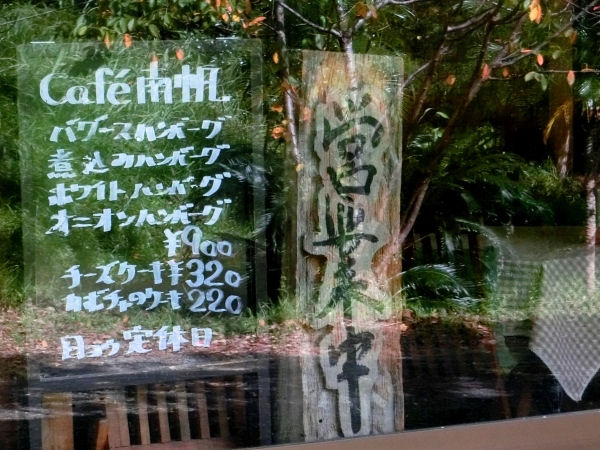 Café 南帆
バグースハンバーグ
煮込みハンバーグ
ホワイトハンバーグ
オニオンハンバーグ
¥900
チーズケーキ ¥320
¥220
日ヨウ定休日
営業中